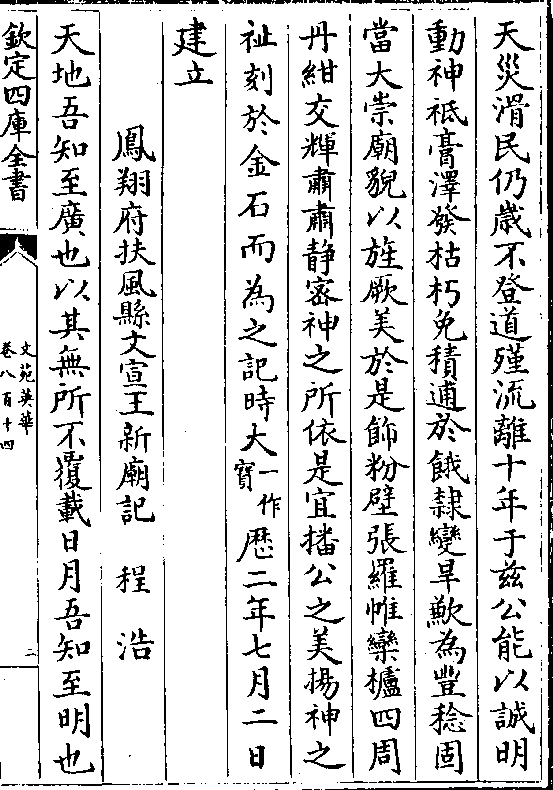 天災滑民仍歲不登道殣流離十年于兹公能以誠明
動神祇膏澤發枯朽免積逋於餓隷變旱歉為豐稔固
當大崇廟貌以旌厥美於是飾粉壁張羅帷欒櫨四周
丹紺交輝肅肅静宻神之所依是宜播公之美揚神之
祉刻於金石而為之記時大一作寶厯二年七月二日
建立
鳳翔府扶風縣文宣王新廟記 程浩
天地吾知至廣也以其無所不覆載日月吾知至明也
欽定四庫全書
文苑英華
卷八百十四
二